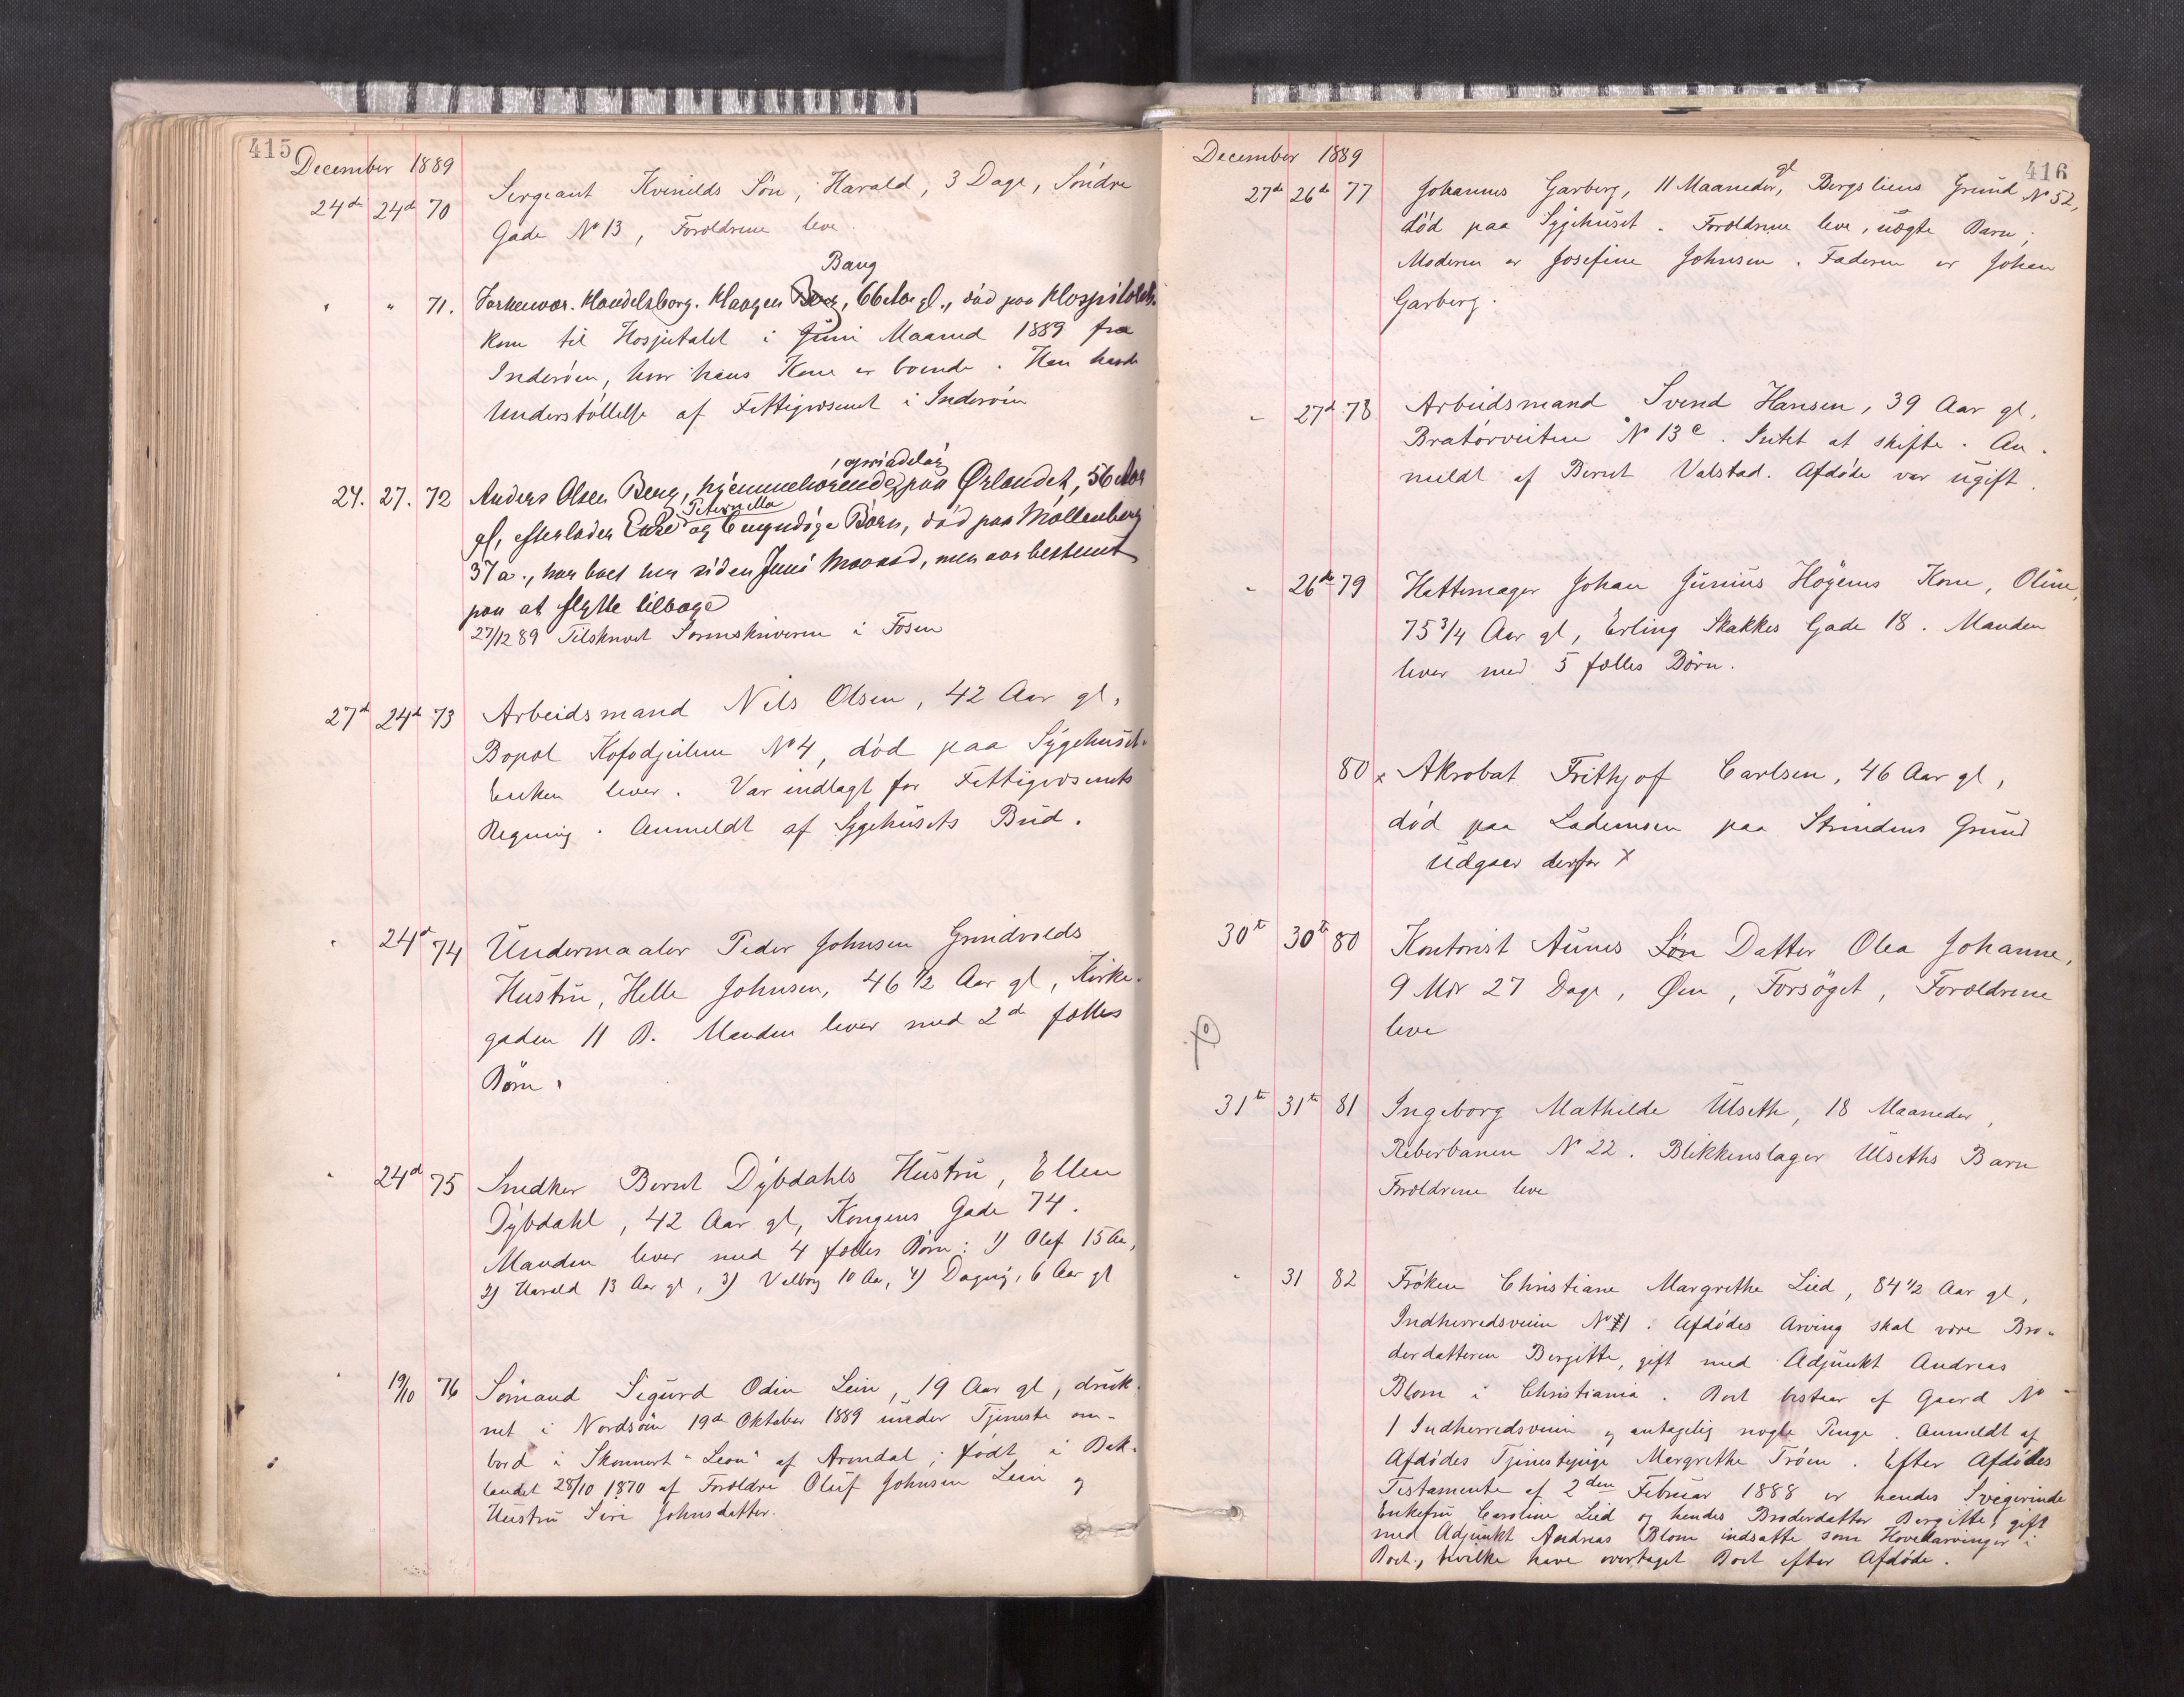 415
December 1889
24de 24d 70 Sergeant Kvenilds Søn, Harald, 3 Dage, Søndre
Gade No 13, Forældrene leve.
Bang
" " 71. Handelsborg. Haagen Berg, 66 Aar gl., død paa Hospitalet.
Kom til Hospitalet i Juni Maaned 1889 fra
Inderøen, hvor hans Kone er boende. Han havde
Understøttelse af Fattigvæsenet i Inderøen
24. 27. 72 Anders Olsen Berg, hjemmehørende paa Ørlandet, 56 Aar
Peternella
gl, efterlader Enke og 6 umyndige Børn, død paa Møllenberg
37a., har boet her siden Juni Maaned, men var bestemt
paa at flytte tilbage
27/12 89 Tilskrevet Sorenskriveren i Fosen
27d 24d 73 Arbeidsmand Nils Olsen, 42 Aar gl,
Bopæl Kofodgeilene No 4, død paa Sygehuset.
Enken lever. Var indlagt for Fattigvæsenets
Regning. Anmeldt af Sygehusets Bud.
" 24d 74 Undermaaler Peder Johnsen Grindvolds
Hustru, Helle Johnsen, 46 1/2 Aar gl, Kirke-
gaden 11 B. Manden lever med 2de fælles
Børn.
" 24d 75 Snedker Bernt Dybdahls Hustru, Ellen
Dybdahl, 42 Aar gl, Kongens Gade 74.
Manden lever med 4 fælles Børn: 1) Olef 15 Aa,
2) Harald 13 Aar gl, 3) Valborg 10 Aa, 4) Dagny, 6 Aar gl
" 19/10 76 Sømand Sigurd Odin Lein, 19 Aar gl, druk-
net i Nordsøen 19de Oktober 1889 under Tjeneste om-
bord i Skonnert "Leon" af Arendal; født i Bak-
landet 28/10 1870 af Forældre Oluf Johnsen Lein og
Hustru Siri Johnsdatter.
416
December 1889
27de 26de 77 Johannes Garberg, 11 Maaneder gl, Bergsliens Grund No 52,
død paa Sygehuset. Forældrene leve, uægte Barn;
Moderen er Josefine Johnsen. Faderen er Johan
Garberg.
" 27d 78 Arbeidsmand Svend Hansen, 39 Aar gl,
Bratørveiten No 13 c. Intet at skifte. An-
meldt af Bernt Valstad. Afdøde var ugift.
" 26de 79 Hattemager Johan Junius Høyems Kone, Oline,
75 3/4 Aar gl, Erling Skakkes Gade 18. Manden
lever med 5 fælles Børn.
80 x Akrobat Frithjof Carlsen, 46 Aar gl,
død paa Lademoen paa Strindens Grund
Udgaar derfor x
30te 30te 80 Kontorist Aunes Søn Datter Olea Johanne,
9 Mdr 27 Dage, Øen, Forsøget, Forældrene
leve
31te 31te 81 Ingeborg Mathilde Ulseth, 18 Maaneder,
Reberbanen No 22. Blikkenslager Ulseths Barn
Forældrene leve
" 31 82 Frøken Christiane Margrethe Lied, 84 1/2 Aar gl,
Indherredsveien No 1. Afdødes Arving skal være Bro-
derdatteren Bergitte, gift med Adjunkt Andreas
Blom i Christiania. Boet bestaar af Gaard No
1 Indherredsveien og antagelig nogle Penge. Anmeldt af
Afdødes Tjenestepige Margrethe Trøen. Efter Afdødes
Testamente af 2den Februar 1888 er hendes Svigerinde
Enkefru Caroline Lied og hendes Broderdatter Bergitte, gift
med Adjunkt Andreas Blom indsatte som Hovedarvinger i
Boet, hvilke have overtaget Boet efter Afdøde.